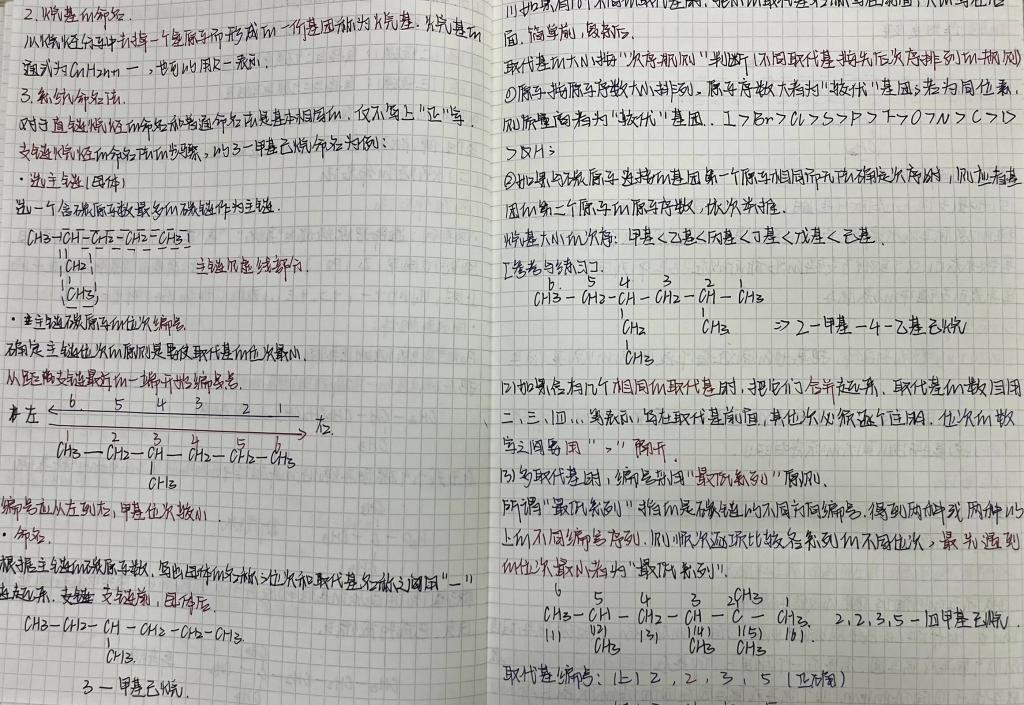 2. 烷基的命名.
从烷烃分子中去掉一个氢原子而形成的一价基团称为烷基. 烷基的
通式为CnH2n+1 一, 也可以用R一表示.
3. 系统命名法.
对于直链烷烃的命名和普通命名法是基本相同的, 仅不写上“正”字.
支链烷烃的命名法的步骤, 以3一甲基己烷命名为例:
· 选主链 (母体)
选一个含碳原子数最多的碳链作为主链.
CH3-CH-CH2-CH2-CH3
CH2
CH3
主链见虚线部分.
· 主链碳原子的位次编号.
确定主链位次的原则是要使取代基的位次最小.
从距离支链最近的一端开始编号.
6 5 4 3 2 1
左 右
1 2 3 4 5 6
CH3—CH2-CH-CH2-CH2-CH3
CH3
编号应从左到右, 甲基位次较小.
· 命名.
根据主链的碳原子数, 写出母体的名称; 位次和取代基名称之间用“—”
连起来. 支链 支链前, 母体后.
CH3-CH2-CH-CH2-CH2-CH3
CH3.
3 一 甲基己烷.
面. 简单前, 复杂后.
取代基的大小按“次序规则”判断 (不同取代基按先后次序排列的规则)
①原子按原子序数大小排列. 原子序数大者为“较优”基团; 若为同位素,
则质量高者为“较优”基团. I>Br>Cl>S>P>F>O>N>C>D
>H;
②如果与碳原子连接的基团第一个原子相同而无法确定次序时, 则应看基
团的第二个原子的原子序数, 依次类推.
烷基大小的次序: 甲基<乙基<丙基<丁基<戊基<己基.
[参考与练习].
6. 5 4 3 2 1
CH3-CH2-CH-CH2-CH-CH3
CH2 CH3 ⇒ 2-甲基-4-乙基己烷
CH3
(2)如果含有几个相同的取代基时, 把它们合并起来. 取代基的数目用
二、三、四... 等表示, 写在取代基前面, 其位次必须逐个注明. 位次的数
字之间要用“,”隔开.
(3)多取代基时, 编号采用“最低系列”原则.
所谓“最低系列”指的是碳链以不同方向编号. 得到两种或两种以
上的不同编号序列. 则顺次逐项比较各系列的不同位次, 最先遇到
的位次最小者为“最低系列”.
6 5 4 3 2CH3 1
CH3-CH-CH2-CH-C-CH3. 2,2,3,5-四甲基己烷.
(1) (2) (3) (4) (5) (6).
CH3 CH3 CH3
取代基编号: (上) 2, 2, 3, 5 (正确)